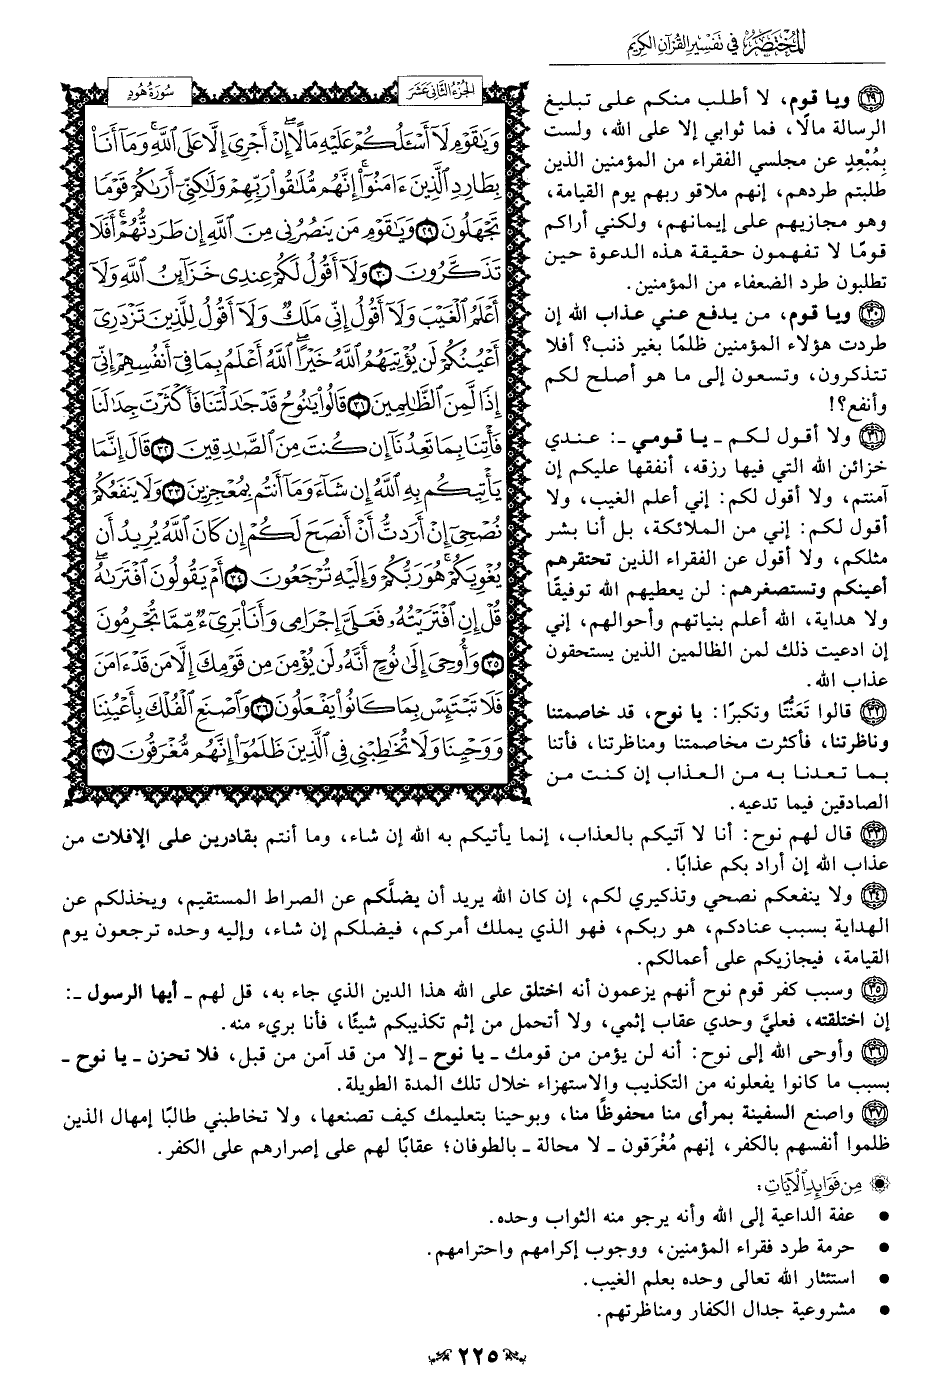 المختصر في تفسير القرآن الكريم
الجزء الثاني عشر
سورة هود
وَيَٰقَوْمِ لَآ أَسْـَٔلُكُمْ عَلَيْهِ مَالًا ۖ إِنْ أَجْرِىَ إِلَّا عَلَى ٱللَّهِ ۚ وَمَآ أَنَا۠
بِطَارِدِ ٱلَّذِينَ ءَامَنُوٓا۟ ۚ إِنَّهُم مُّلَٰقُوا۟ رَبِّهِمْ وَلَٰكِنِّىٓ أَرَىٰكُمْ قَوْمًا
تَجْهَلُونَ ٢٩ وَيَٰقَوْمِ مَن يَنصُرُنِى مِنَ ٱللَّهِ إِن طَرَدتُّهُمْ ۚ أَفَلَا
تَذَكَّرُونَ ٣٠ وَلَآ أَقُولُ لَكُمْ عِندِى خَزَآئِنُ ٱللَّهِ وَلَآ
أَعْلَمُ ٱلْغَيْبَ وَلَآ أَقُولُ إِنِّى مَلَكٌ وَلَآ أَقُولُ لِلَّذِينَ تَزْدَرِىٓ
أَعْيُنُكُمْ لَن يُؤْتِيَهُمُ ٱللَّهُ خَيْرًا ۖ ٱللَّهُ أَعْلَمُ بِمَا فِىٓ أَنفُسِهِمْ ۖ إِنِّىٓ
إِذًا لَّمِنَ ٱلظَّٰلِمِينَ ٣١ قَالُوا۟ يَٰنُوحُ قَدْ جَٰدَلْتَنَا فَأَكْثَرْتَ جِدَٰلَنَا
فَأْتِنَا بِمَا تَعِدُنَآ إِن كُنتَ مِنَ ٱلصَّٰدِقِينَ ٣٢ قَالَ إِنَّمَا
يَأْتِيكُم بِهِ ٱللَّهُ إِن شَآءَ وَمَآ أَنتُم بِمُعْجِزِينَ ٣٣ وَلَا يَنفَعُكُمْ
نُصْحِىٓ إِنْ أَرَدتُّ أَنْ أَنصَحَ لَكُمْ إِن كَانَ ٱللَّهُ يُرِيدُ أَن
يُغْوِيَكُمْ ۚ هُوَ رَبُّكُمْ وَإِلَيْهِ تُرْجَعُونَ ٣٤ أَمْ يَقُولُونَ ٱفْتَرَىٰهُ ۖ
قُلْ إِنِ ٱفْتَرَيْتُهُۥ فَعَلَىَّ إِجْرَامِى وَأَنَا۠ بَرِىٓءٌ مِّمَّا تُجْرِمُونَ
٣٥ وَأُوحِىَ إِلَىٰ نُوحٍ أَنَّهُۥ لَن يُؤْمِنَ مِن قَوْمِكَ إِلَّا مَن قَدْ ءَامَنَ
فَلَا تَبْتَئِسْ بِمَا كَانُوا۟ يَفْعَلُونَ ٣٦ وَٱصْنَعِ ٱلْفُلْكَ بِأَعْيُنِنَا
وَوَحْيِنَا وَلَا تُخَٰطِبْنِى فِى ٱلَّذِينَ ظَلَمُوٓا۟ ۚ إِنَّهُم مُّغْرَقُونَ ٣٧
٢٩ ويا قوم، لا أطلب منكم على تبليغ
الرسالة مالًا، فما ثوابي إلا على الله، ولست
بِمُبْعِدٍ عن مجلسي الفقراء من المؤمنين الذين
طلبتم طردهم، إنهم ملاقو ربهم يوم القيامة،
وهو مجازيهم على إيمانهم، ولكني أراكم
قومًا لا تفهمون حقيقة هذه الدعوة حين
تطلبون طرد الضعفاء من المؤمنين.
٣٠ ويا قوم، من يدفع عني عذاب الله إن
طردت هؤلاء المؤمنين ظلمًا بغير ذنب؟ أفلا
تتذكرون، وتسعون إلى ما هو أصلح لكم
وأنفع؟!
٣١ ولا أقول لكم ـ يا قومي ـ: عندي
خزائن الله التي فيها رزقه، أنفقها عليكم إن
آمنتم، ولا أقول لكم: إني أعلم الغيب، ولا
أقول لكم: إني من الملائكة، بل أنا بشر
مثلكم، ولا أقول عن الفقراء الذين تحتقرهم
أعينكم وتستصغرهم: لن يعطيهم الله توفيقًا
ولا هداية، الله أعلم بنياتهم وأحوالهم، إني
إن ادعيت ذلك لمن الظالمين الذين يستحقون
عذاب الله.
٣٢ قالوا تَعَنُّتًا وتكبرًا: يا نوح، قد خاصمتنا
وناظرتنا، فأكثرت مخاصمتنا ومناظرتنا، فأتنا
بما تعدنا به من العذاب إن كنت من
الصادقين فيما تدعيه.
٣٣ قال لهم نوح: أنا لا آتيكم بالعذاب، إنما يأتيكم به الله إن شاء، وما أنتم بقادرين على الإفلات من
عذاب الله إن أراد بكم عذابًا.
٣٤ ولا ينفعكم نصحي وتذكيري لكم، إن كان الله يريد أن يضلَّكم عن الصراط المستقيم، ويخذلكم عن
الهداية بسبب عنادكم، هو ربكم، فهو الذي يملك أمركم، فيضلكم إن شاء، وإليه وحده ترجعون يوم
القيامة، فيجازيكم على أعمالكم.
٣٥ وسبب كفر قوم نوح أنهم يزعمون أنه اختلق على الله هذا الدين الذي جاء به، قل لهم ـ أيها الرسول ـ:
إن اختلقته، فعليَّ وحدي عقاب إثمي، ولا أتحمل من إثم تكذيبكم شيئًا، فأنا بريء منه.
٣٦ وأوحى الله إلى نوح: أنه لن يؤمن من قومك ـ يا نوح ـ إلا من قد آمن من قبل، فلا تحزن ـ يا نوح ـ
بسبب ما كانوا يفعلونه من التكذيب والاستهزاء خلال تلك المدة الطويلة.
٣٧ واصنع السفينة بمرأى منا محفوظًا منا، وبوحينا بتعليمك كيف تصنعها، ولا تخاطبني طالبًا إمهال الذين
ظلموا أنفسهم بالكفر، إنهم مُغْرَقون ـ لا محالة ـ بالطوفان؛ عقابًا لهم على إصرارهم على الكفر.
من فوائد الآيات:
• عفة الداعية إلى الله وأنه يرجو منه الثواب وحده.
• حرمة طرد فقراء المؤمنين، ووجوب إكرامهم واحترامهم.
• استئثار الله تعالى وحده بعلم الغيب.
• مشروعية جدال الكفار ومناظرتهم.
٢٢٥